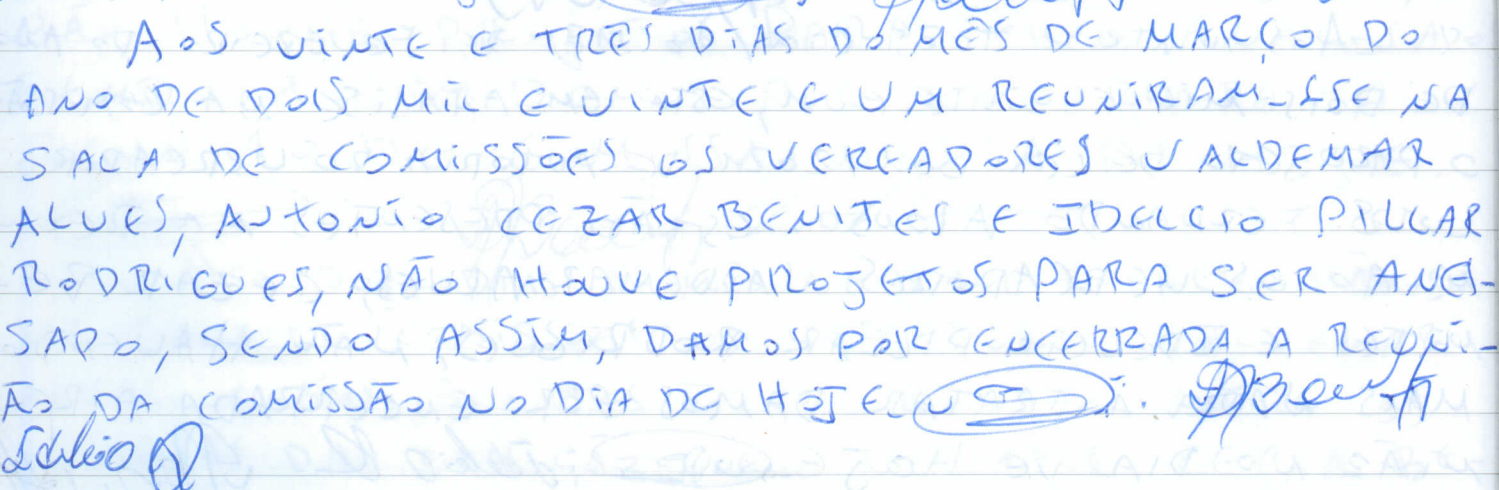 AOS VINTE E TRÊS DIAS DO MÊS DE MARÇO DO
ANO DE DOIS MIL E VINTE E UM REUNIRAM-SSE NA
SALA DE COMISSÕES OS VEREADORES VALDEMAR
ALVES, ANTONIO CEZAR BENITES E IDELCIO PILLAR
RODRIGUES, NÃO HOUVE PROJETOS PARA SER ANEI-
SADO, SENDO ASSIM, DAMOS POR ENCERRADA A REUNI-
ÃO DA COMISSÃO NO DIA DE HOJE.